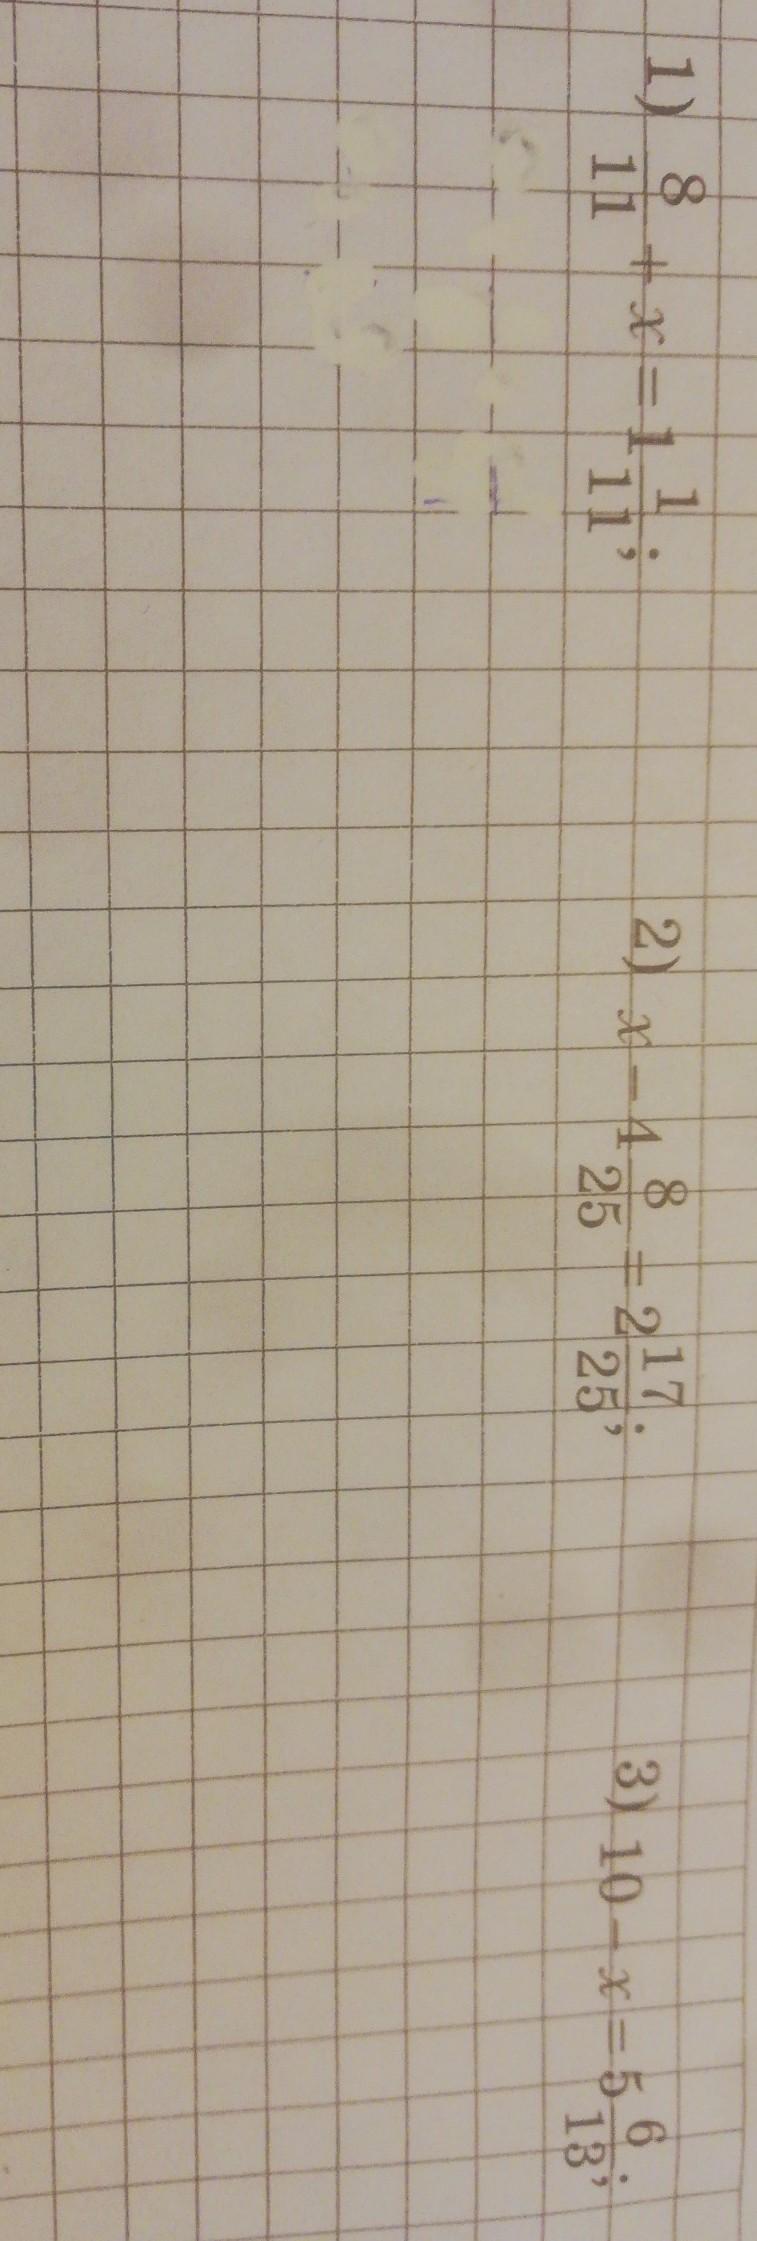 1) 8/11 + x = 1 1/11;
2) x − 4 8/25 = 2 17/25;
3) 10 − x = 5 6/13;